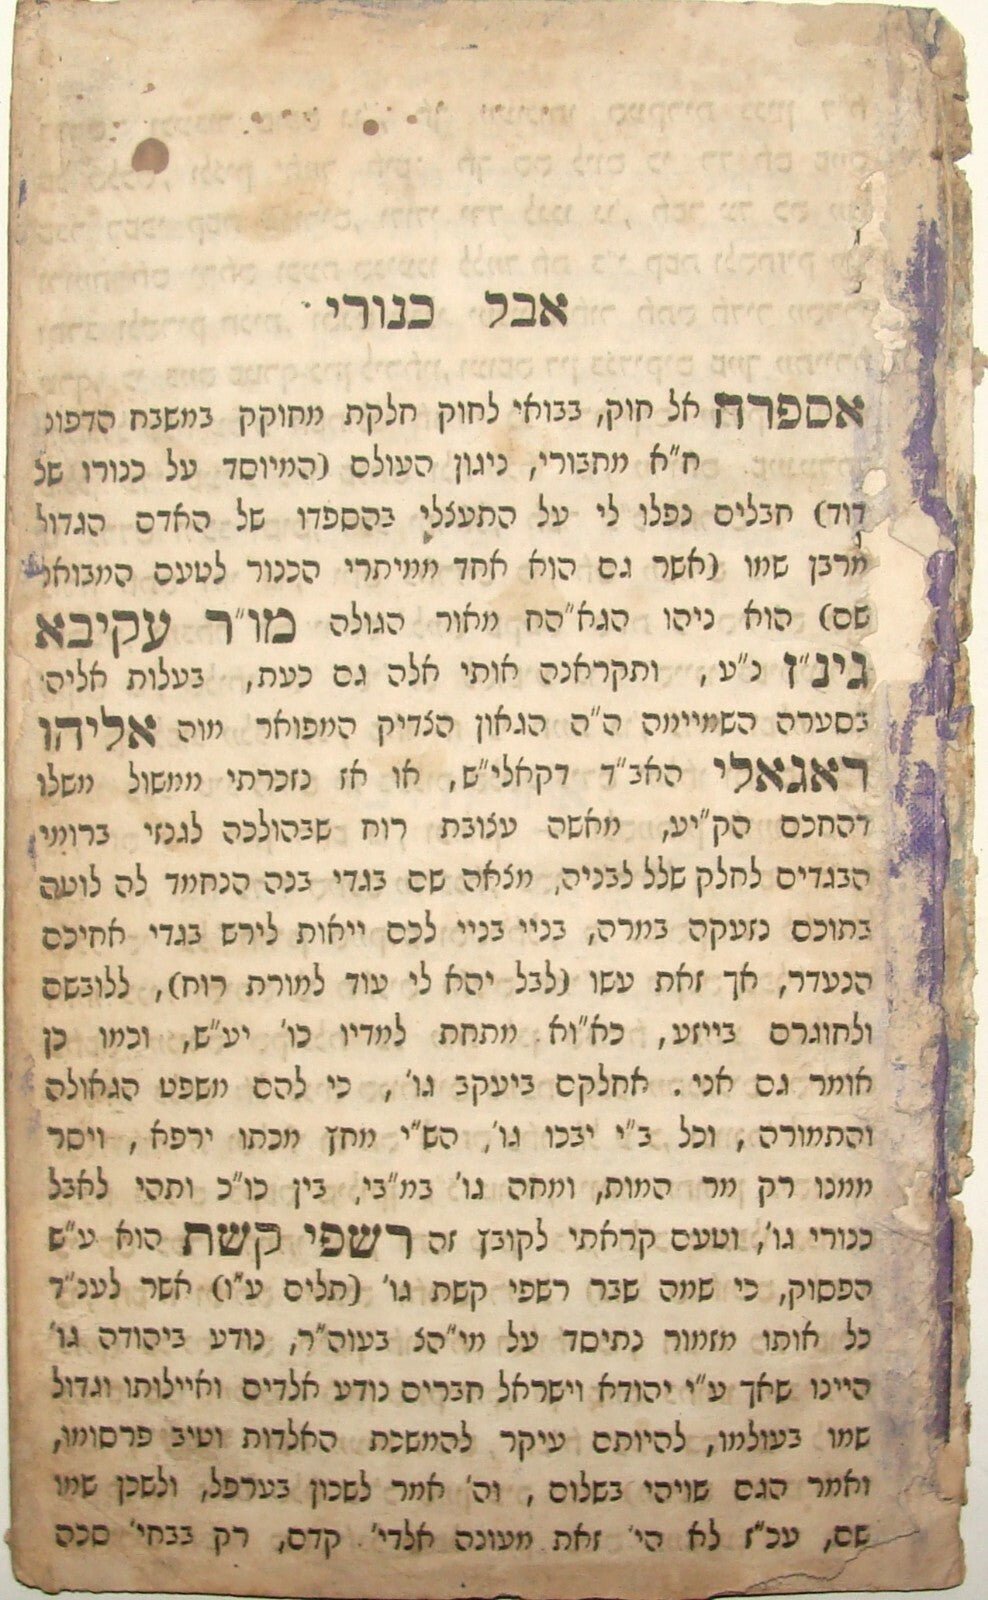 אבל כנורי
אספרה אל חוק, בבואי לחוק חלקת מחוקק במשבח הדפוס
ח"א מחבורי, ניגון העולם (המיוסד על כנורו של
דוד) חבלים נפלו לי על התעצלי בהספדו של האדם הגדול
מרבן שמו (אשר גם הוא אחד ממיתרי הכנור לטעם המבואר
שם) הוא ניהו הגא"הח מאור הגולה מו"ר עקיבא
גינ"ז נ"ע, ותקראנה אותי אלה גם כעת, בעלות אליהו
בסערה השמיימה ה"ה הגאון הצדיק המפואר מוה אליהו
ראגאלי האב"ד דקאלי"ש, או אז נזכרתי ממשול משלו
דהחכם הק"יע, מאשה עצובת רוח שבהולכה לגנזי ברומי
הבגדים לחלק שלל לבניה, מצאה שם בגדי בנה הנחמד לה לועה
בתוכם נזעקה במרה, בניי בניי לכם ייאות לירש בגדי אחיכם
הנעדר, אך זאת עשו (לבל יהא לי עוד למורת רוח), ללובשם
ולחוגרם בייזע, כא"וא מתחת למדיו כו' יע"ש, וכמו כן
אומר גם אני. אחלקם ביעקב גו', כי להם משפט הגאולה
והתמורה, וכל ב"י יבכו גו', הש"י מחץ מכתו ירפא, ויסר
ממנו רק מר המות, ומחה גו' במ"בי, בין כו"כ ותהי לאבל
כנורי גו', וטעם קראתי לקובץ זה רשפי קשת הוא ע"ש
הפסוק, כי שמה שבר רשפי קשת גו' (תלים ע"ו) אשר לענ"ד
כל אותו מזמור נתיסד על מי"הצ בעוה"ר, נודע ביהודה גו'
היינו שאך ע"י יהודא וישראל חברים נודע אלדים ואיילותו וגדול
שמו בעולמו, להיותם עיקר להמשכת האלדות וטיב פרסומו,
ואמר הגם שויהי בשלום, וה' אמר לשכון בערפל, ולשכן שמו
שם, עכ"ז לא הי' זאת מעונה אלדי' קדם, רק בבחי' סכה